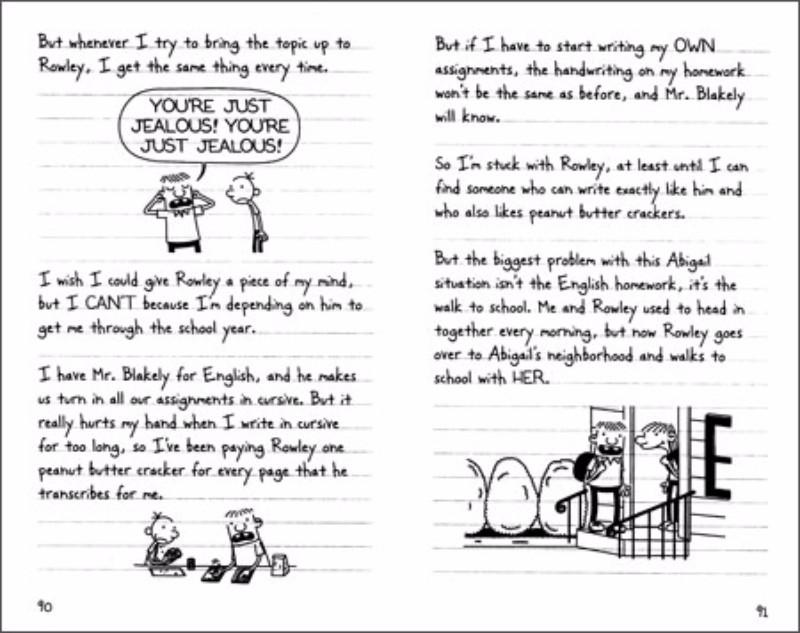 But whenever I try to bring the topic up to
Rowley, I get the same thing every time.
YOU'RE JUST
JEALOUS! YOU'RE
JUST JEALOUS!
I wish I could give Rowley a piece of my mind,
but I CAN'T because I'm depending on him to
get me through the school year.
I have Mr. Blakely for English, and he makes
us turn in all our assignments in cursive. But it
really hurts my hand when I write in cursive
for too long, so I've been paying Rowley one
peanut butter cracker for every page that he
transcribes for me.
90
But if I have to start writing my OWN
assignments, the handwriting on my homework
won't be the same as before, and Mr. Blakely
will know.
So I'm stuck with Rowley, at least until I can
find someone who can write exactly like him and
who also likes peanut butter crackers.
But the biggest problem with this Abigail
situation isn't the English homework, it's the
walk to school. Me and Rowley used to head in
together every morning, but now Rowley goes
over to Abigail's neighborhood and walks to
school with HER.
E
91